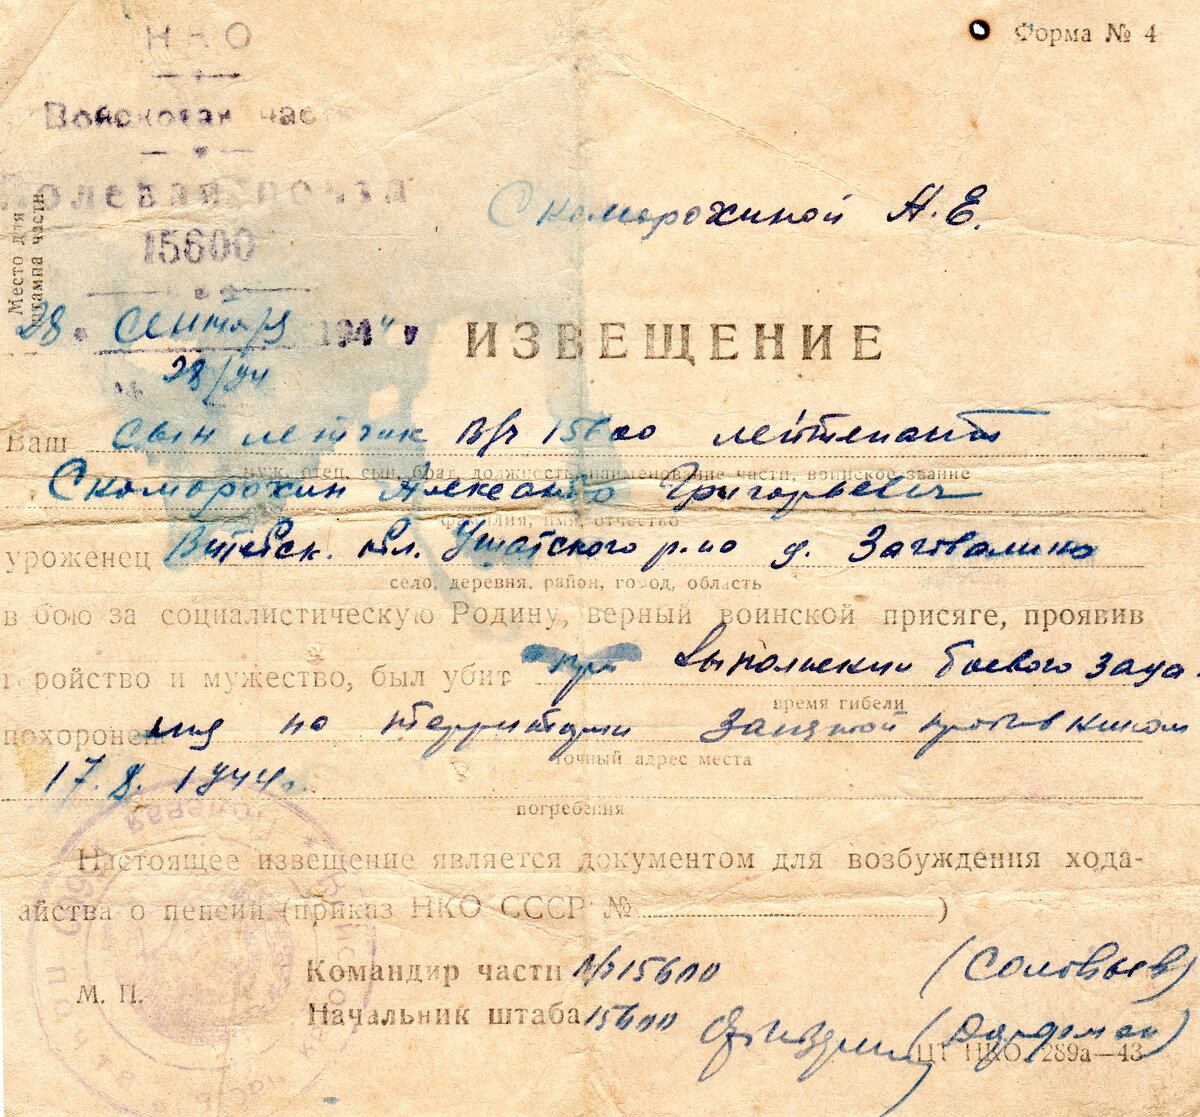 НКО
Форма № 4
Войсковая часть
Полевая почта
15600
Место для
штампа части
Скоморохиной А. Е.
28 " сентября 1944 г
№ 28/44
ИЗВЕЩЕНИЕ
Ваш сын летчик в/ч 15600 лейтенант
муж, отец, сын, брат, должность, наименование части, воинское звание
Скоморохин Александр Григорьевич
фамилия, имя, отчество
уроженец Витебск. обл. Ушатского р-на д.
село, деревня, район, город, область
в бою за социалистическую Родину, верный воинской присяге, проявив
геройство и мужество, был убит при выполнении боевого зада-
время гибели
похоронен ния на территории занятой противником
точный адрес места
17. 8. 1944 г.
погребения
Настоящее извещение является документом для возбуждения хода-
айства о пенсии (приказ НКО СССР № )
Командир части в/ч 15600 (Соловьев)
М. П.
Начальник штаба 15600
ЦТ НКО. 289а—43